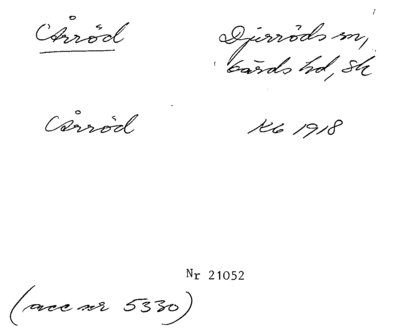 Årröd Djurröds sn,
Gärds hd, Sk
Årröd KG 1918
Nr 21052
(acc nr 5330)